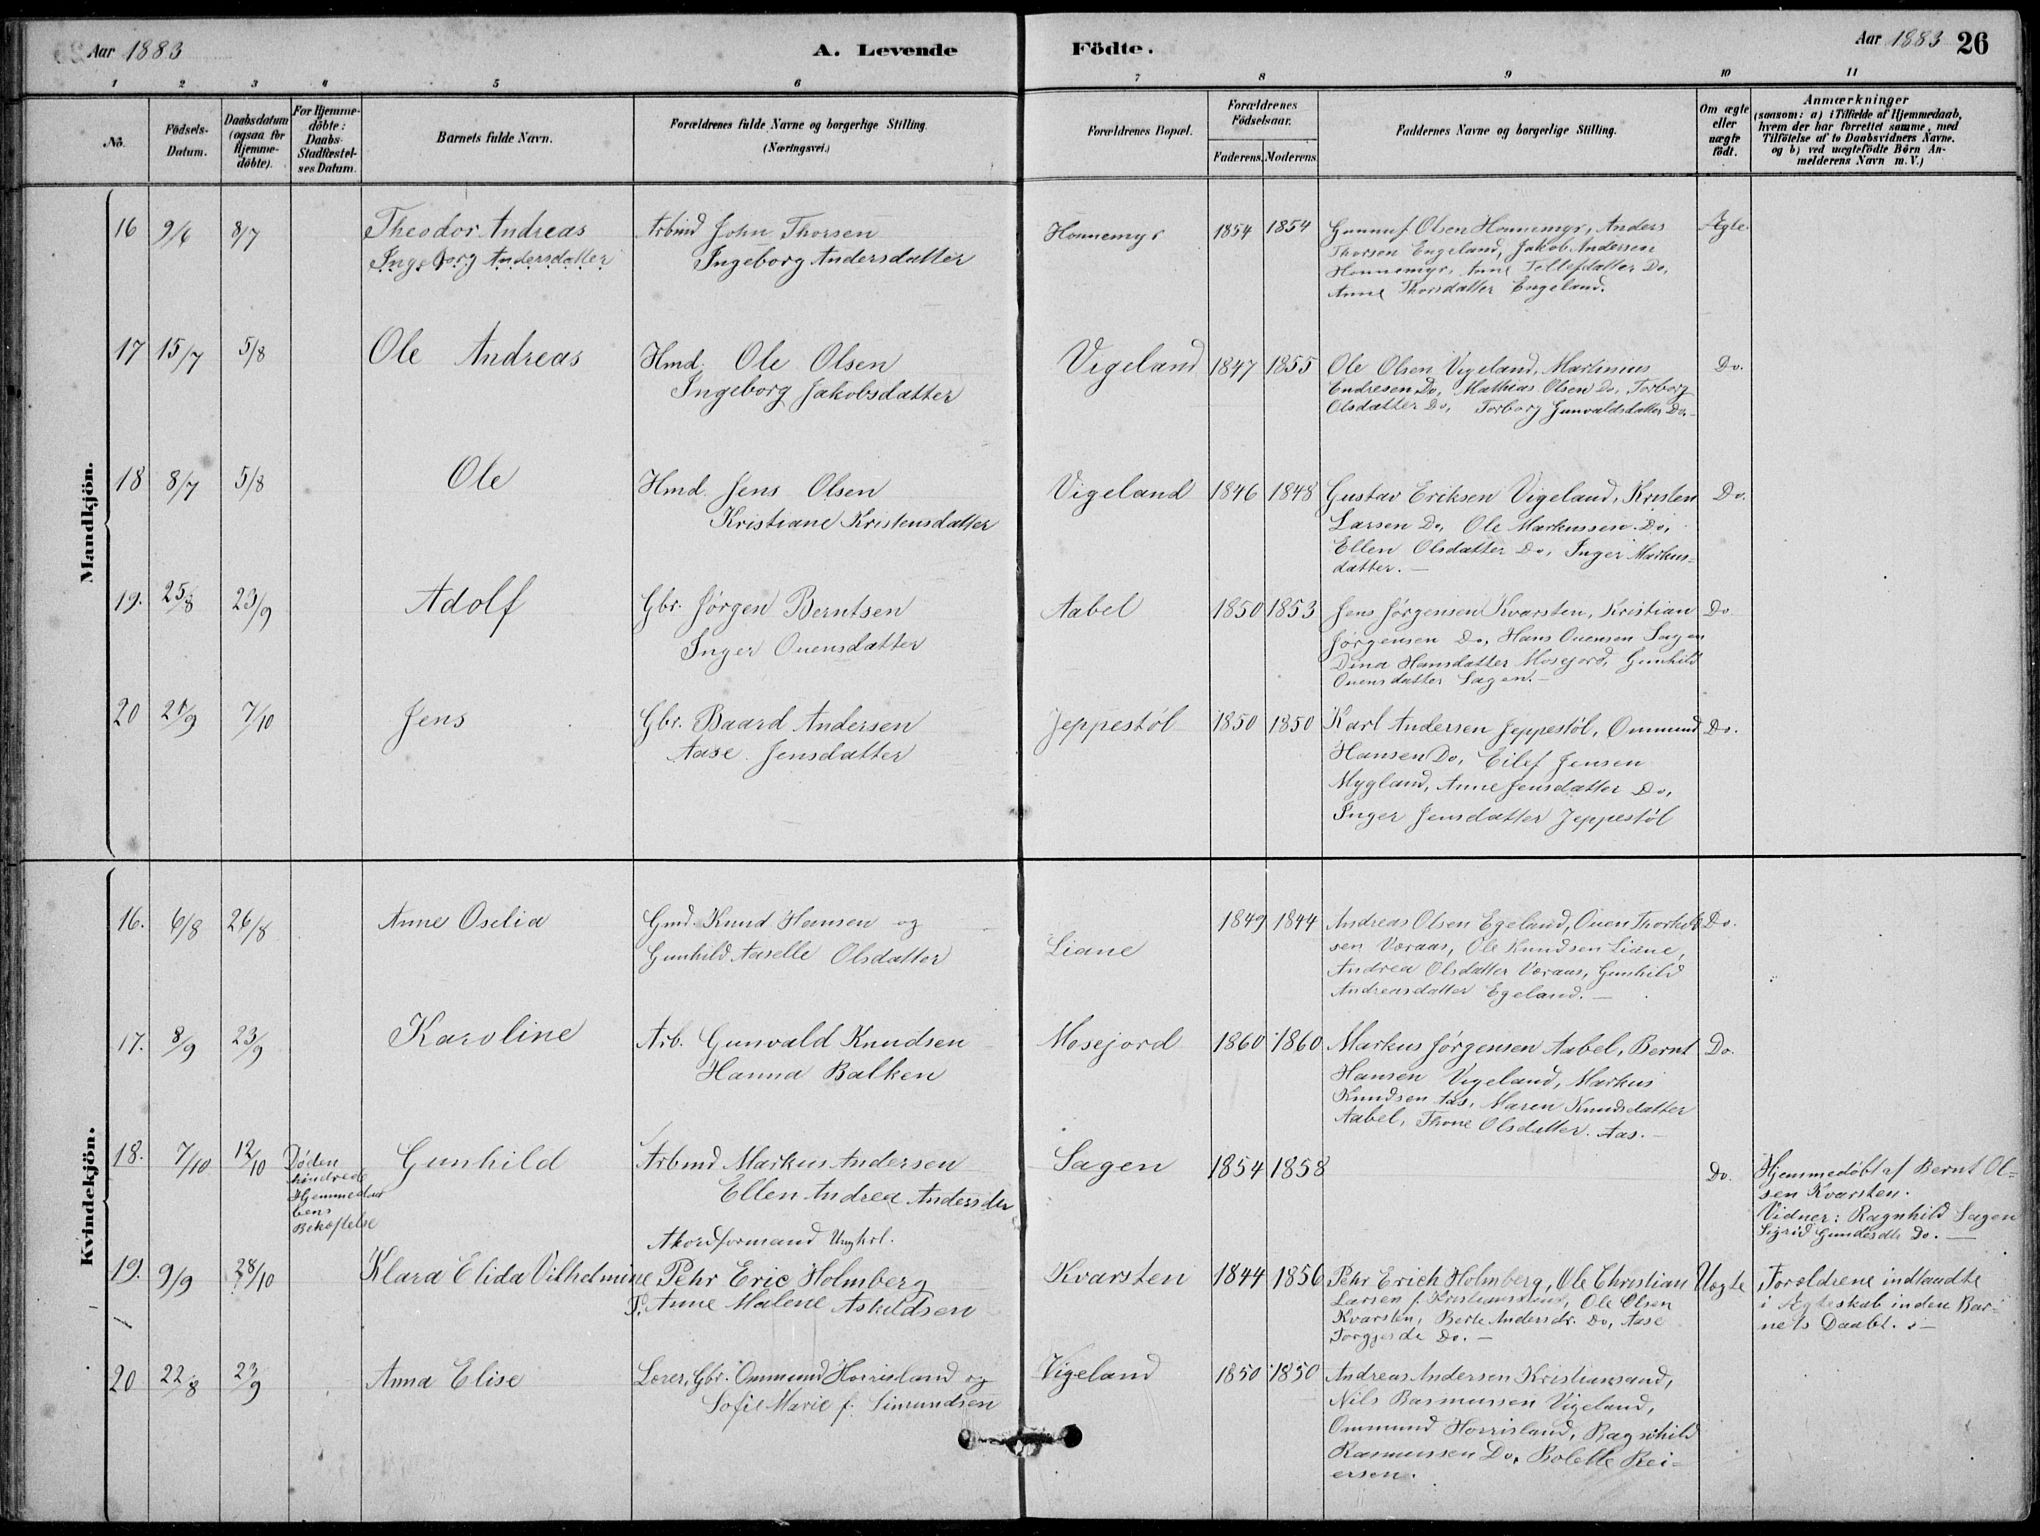 Aar 1883
A. Levende Födte.
Aar 1883 26
1 2 3 4 5 6 7 8 9 10 11
No.
Födsels-Datum.
Daabsdatum (ogsaa for Hjemme-döbte).
For Hjemme-döbte: Daabs-Stadfæstel-ses Datum.
Barnets fulde Navn.
Forældrenes fulde Navne og borgerlige Stilling. (Næringsvei.)
Forældrenes Bopæl.
Forældrenes Födselsaar.
Faderens. Moderens.
Faddernes Navne og borgerlige Stilling.
Om ægte eller uægte födt.
Anmærkninger
(saasom: a) i Tilfælde af Hjemmedaab, hvem der har forrettet samme, med Tilföielse af to Daabsvidners Navne. og b) ved uægtefödte Börn Anmelderens Navn m. V.)
Mandkjön.
16 9/6 8/7 Theodor Andreas Arbmd John Thorsen Honnemyr 1854 1854 Gunnuf Olsen Honnemyr, Anders Ægte.
Ingeborg Andersdatter Ingeborg Andersdatter Thorsen Engeland, Jakob Andersen
Honnemyr, Anne Tellefdatter Do,
Anne Thorsdatter Engeland.
17 15/7 5/8 Ole Andreas Hmd. Ole Olsen Vigeland 1847 1855 Ole Olsen Vigeland, Martinius Do.
Ingeborg Jakobsdatter Endresen Do, Mathias Olsen Do, Torborg
Olsdatter Do, Torborg Gunvaldsdatter Do.
18 8/7 5/8 Ole Hmd. Jens Olsen Vigeland 1846 1848 Gustav Eriksen Vigeland, Kristen Do.
Kristiane Kristensdatter Larsen Do, Ole Markussen Do,
Ellen Olsdatter Do, Inger Markus-
datter. —
19. 25/8 23/9 Adolf Gbr. Jørgen Berntsen Aabel 1850 1853 Jens Jørgensen Kvarsten, Kristian Do.
Inger Ouensdatter Jørgensen Do, Hans Ouensen Sagen
Dina Hansdatter Mosejord, Gunhild
Ouensdatter Sagen. —
20 21/9 7/10 Jens Gbr. Baard Andersen Jeppestøl 1850 1850 Karl Andersen Jeppestøl, Ommund Do.
Aase Jensdatter Hansen Do, Eilef Jensen
Mygland, Anne Jensdatter Do,
Inger Jensdatter Jeppestøl
Kvindekjön.
16. 6/8 26/8 Anne Oselia Gmd Knud Hansen og Liane 1849 1844 Andreas Olsen Egeland, Ouen Thorkild- Do.
Gunhild Aaselle Olsdatter sen Voraas, Ole Knudsen Liane,
Andrea Olsdatter Voraas, Gunhild
Andreasdatter Egeland. —
17. 8/9 23/9 Karoline Arb. Gunvald Knudsen Mosejord 1860 1860 Markus Jørgensen Aabel, Bernt Do.
Hanna Balken Hansen Vigeland, Markus
Knudsen Aas, Maren Knudsdatter
Aabel, Thone Olsdatter Aas. —
18. 7/10 12/10 Døden Gunhild Arbmd Markus Andersen Sagen 1854 1858 Do. Hjemmedøbt af Bernt Ol-
hindrede Ellen Andrea Andersdtr sen Kvarsten.
Hjemmedaa Vidner: Ragnhild Sagen
bens Sigrid Gundesdtr Do. —
Bekræftelse
Akordformand Ungkrl.
19. 9/9 28/10 Klara Elida Vilhelmine Pehr Eric Holmberg Kvarsten 1844 1856 Pehr Erich Holmberg, Ole Christian Uægte Foreldrene indtraadte
P. Anne Malene Askildsen Larsen f. Kristianssand, Ole Olsen i Ægteskab inden Bar-
Kvarsten, Berte Andersdr. Do, Aase nets Daab.
Torgjersde Do. —
20 22/8 23/9 Anna Elise Lærer, Gbr. Ommund Horrisland og Vigeland 1850 1850 Andreas Andersen Kristianssand,
Sofie Marie f. Simundsen Nils Rasmussen Vigeland,
Ommund Horrisland, Ragnhild
Rasmussen Do, Bolette Rei-
ersen.